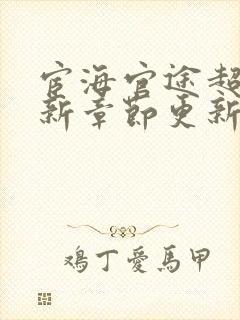 宦海官途超
新章節更新
鴉丁愛馬甲